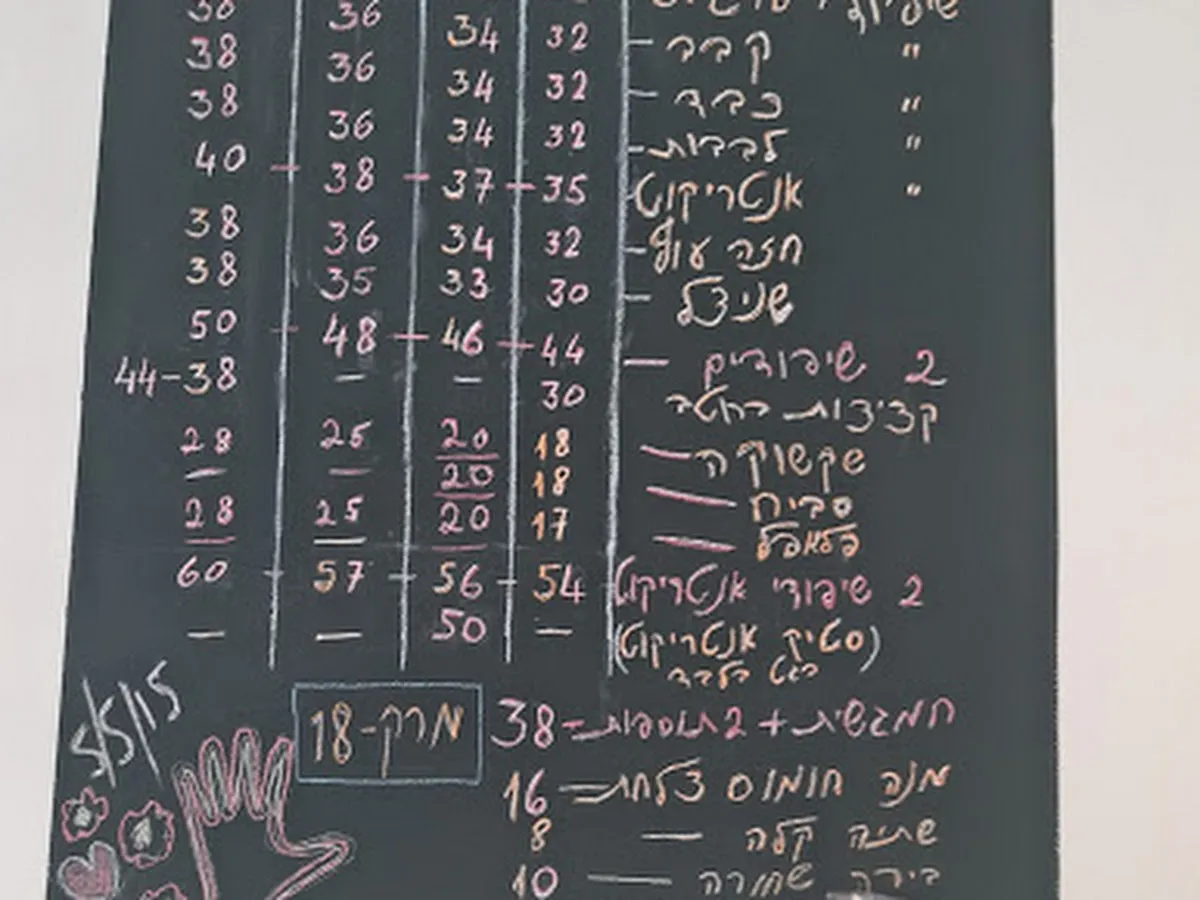 32 34 36 38
" קבב – 32 34 36 38
" כבד – 32 34 36 38
" לבבות – 32 34 36 38
" אנטריקוט – 35 – 37 – 38 – 40
חזה עוף – 32 34 36 38
שניצל – 30 33 35 38
2 שיפודים – 44 – 46 – 48 – 50
קציצות ברוטב 30 – – 44-38
שקשוקה – 18 20 25 28
סביח – 18 20 – –
פלאפל – 17 20 25 28
2 שיפודי אנטריקוט 54 – 56 – 57 – 60
(סטיק אנטריקוט) – 50 – –
בגט בלבד
חמגשית + 2 תוספות – 38
מרק-18
5/5/15
מנה חומוס צלחת – 16
שתיה קלה – 8
בירה שחורה – 10